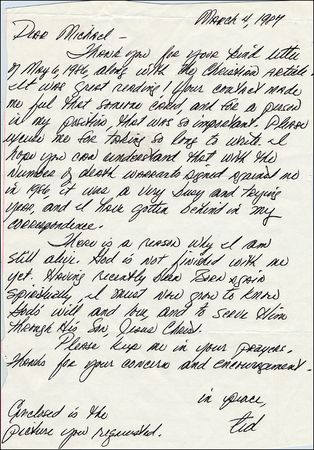 March 4, 1987
Dear Michael -
Thank you for your kind letter
of May 6, 1986, along with the Christian article.
It was great reading! Your contact made
me feel that someone cared, and for a person
in my position, that was so important. Please
excuse me for taking so long to write. I
hope you can understand that with the
number of death warrants signed against me
in 1986 it was a very busy and trying
year, and I have gotten behind in my
correspondence.
There is a reason why I am
still alive. God is not finished with me
yet. Having recently been Born again
spiritually, I must now grow to know
God's will and love, and to serve Him
through His Son, Jesus Christ.
Please keep me in your prayers.
Thanks for your concern and encouragement.
in peace,
ted
Enclosed is the
picture you requested.